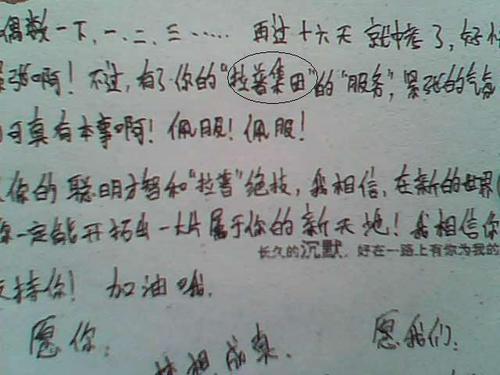 偶数一下,一、二、三…… 再过十六天就中考了,好
张啊!不过,有了你的“拉普集团”的“服务”,紧张的气
可真有本事啊!佩服!佩服!
你的聪明才智和“拉普”绝技,我相信,在新的世界
你一定能开拓出一大片属于你的新天地!我相信你
长久的沉默,好在一路上有你为我的
支持你!加油哦.
愿你: 愿我们:
梦想成真.